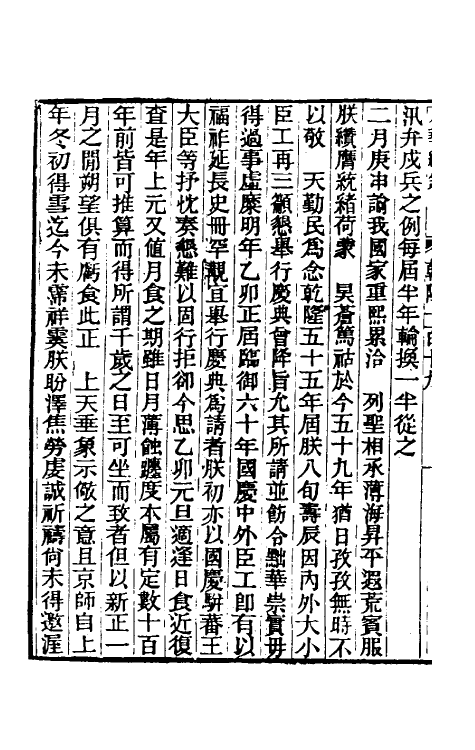 汛弁戍兵之例每屆半年輪換一半從之
二月庚申諭我國家重熙累洽　列聖相承薄海昇平遐荒賓服
朕纘膺統緒荷蒙　昊蒼篤祜於今五十九年猶日孜孜無時不
以敬　天勤民爲念乾隆五十五年屆朕八旬壽辰因內外大小
臣工再三籲懇舉行慶典曾降旨允其所請並飭令黜華崇實毋
得過事虛糜明年乙卯正屆臨御六十年國慶中外臣工卽有以
福祚延長史冊罕覯宜舉行慶典爲請者朕初亦以國慶駢蕃王
大臣等抒忱奏懇難以固行拒卻今思乙卯元旦適逢日食近復
查是年上元又值月食之期雖日月薄蝕躔度本屬有定數十百
年前皆可推算而得所謂千歲之日至可坐而致者但以新正一
月之閒朔望俱有虧食此正　上天垂象示儆之意且京師自上
年冬初得雪迄今未霈祥霙朕盼澤焦勞虔誠祈禱尙未得邀渥